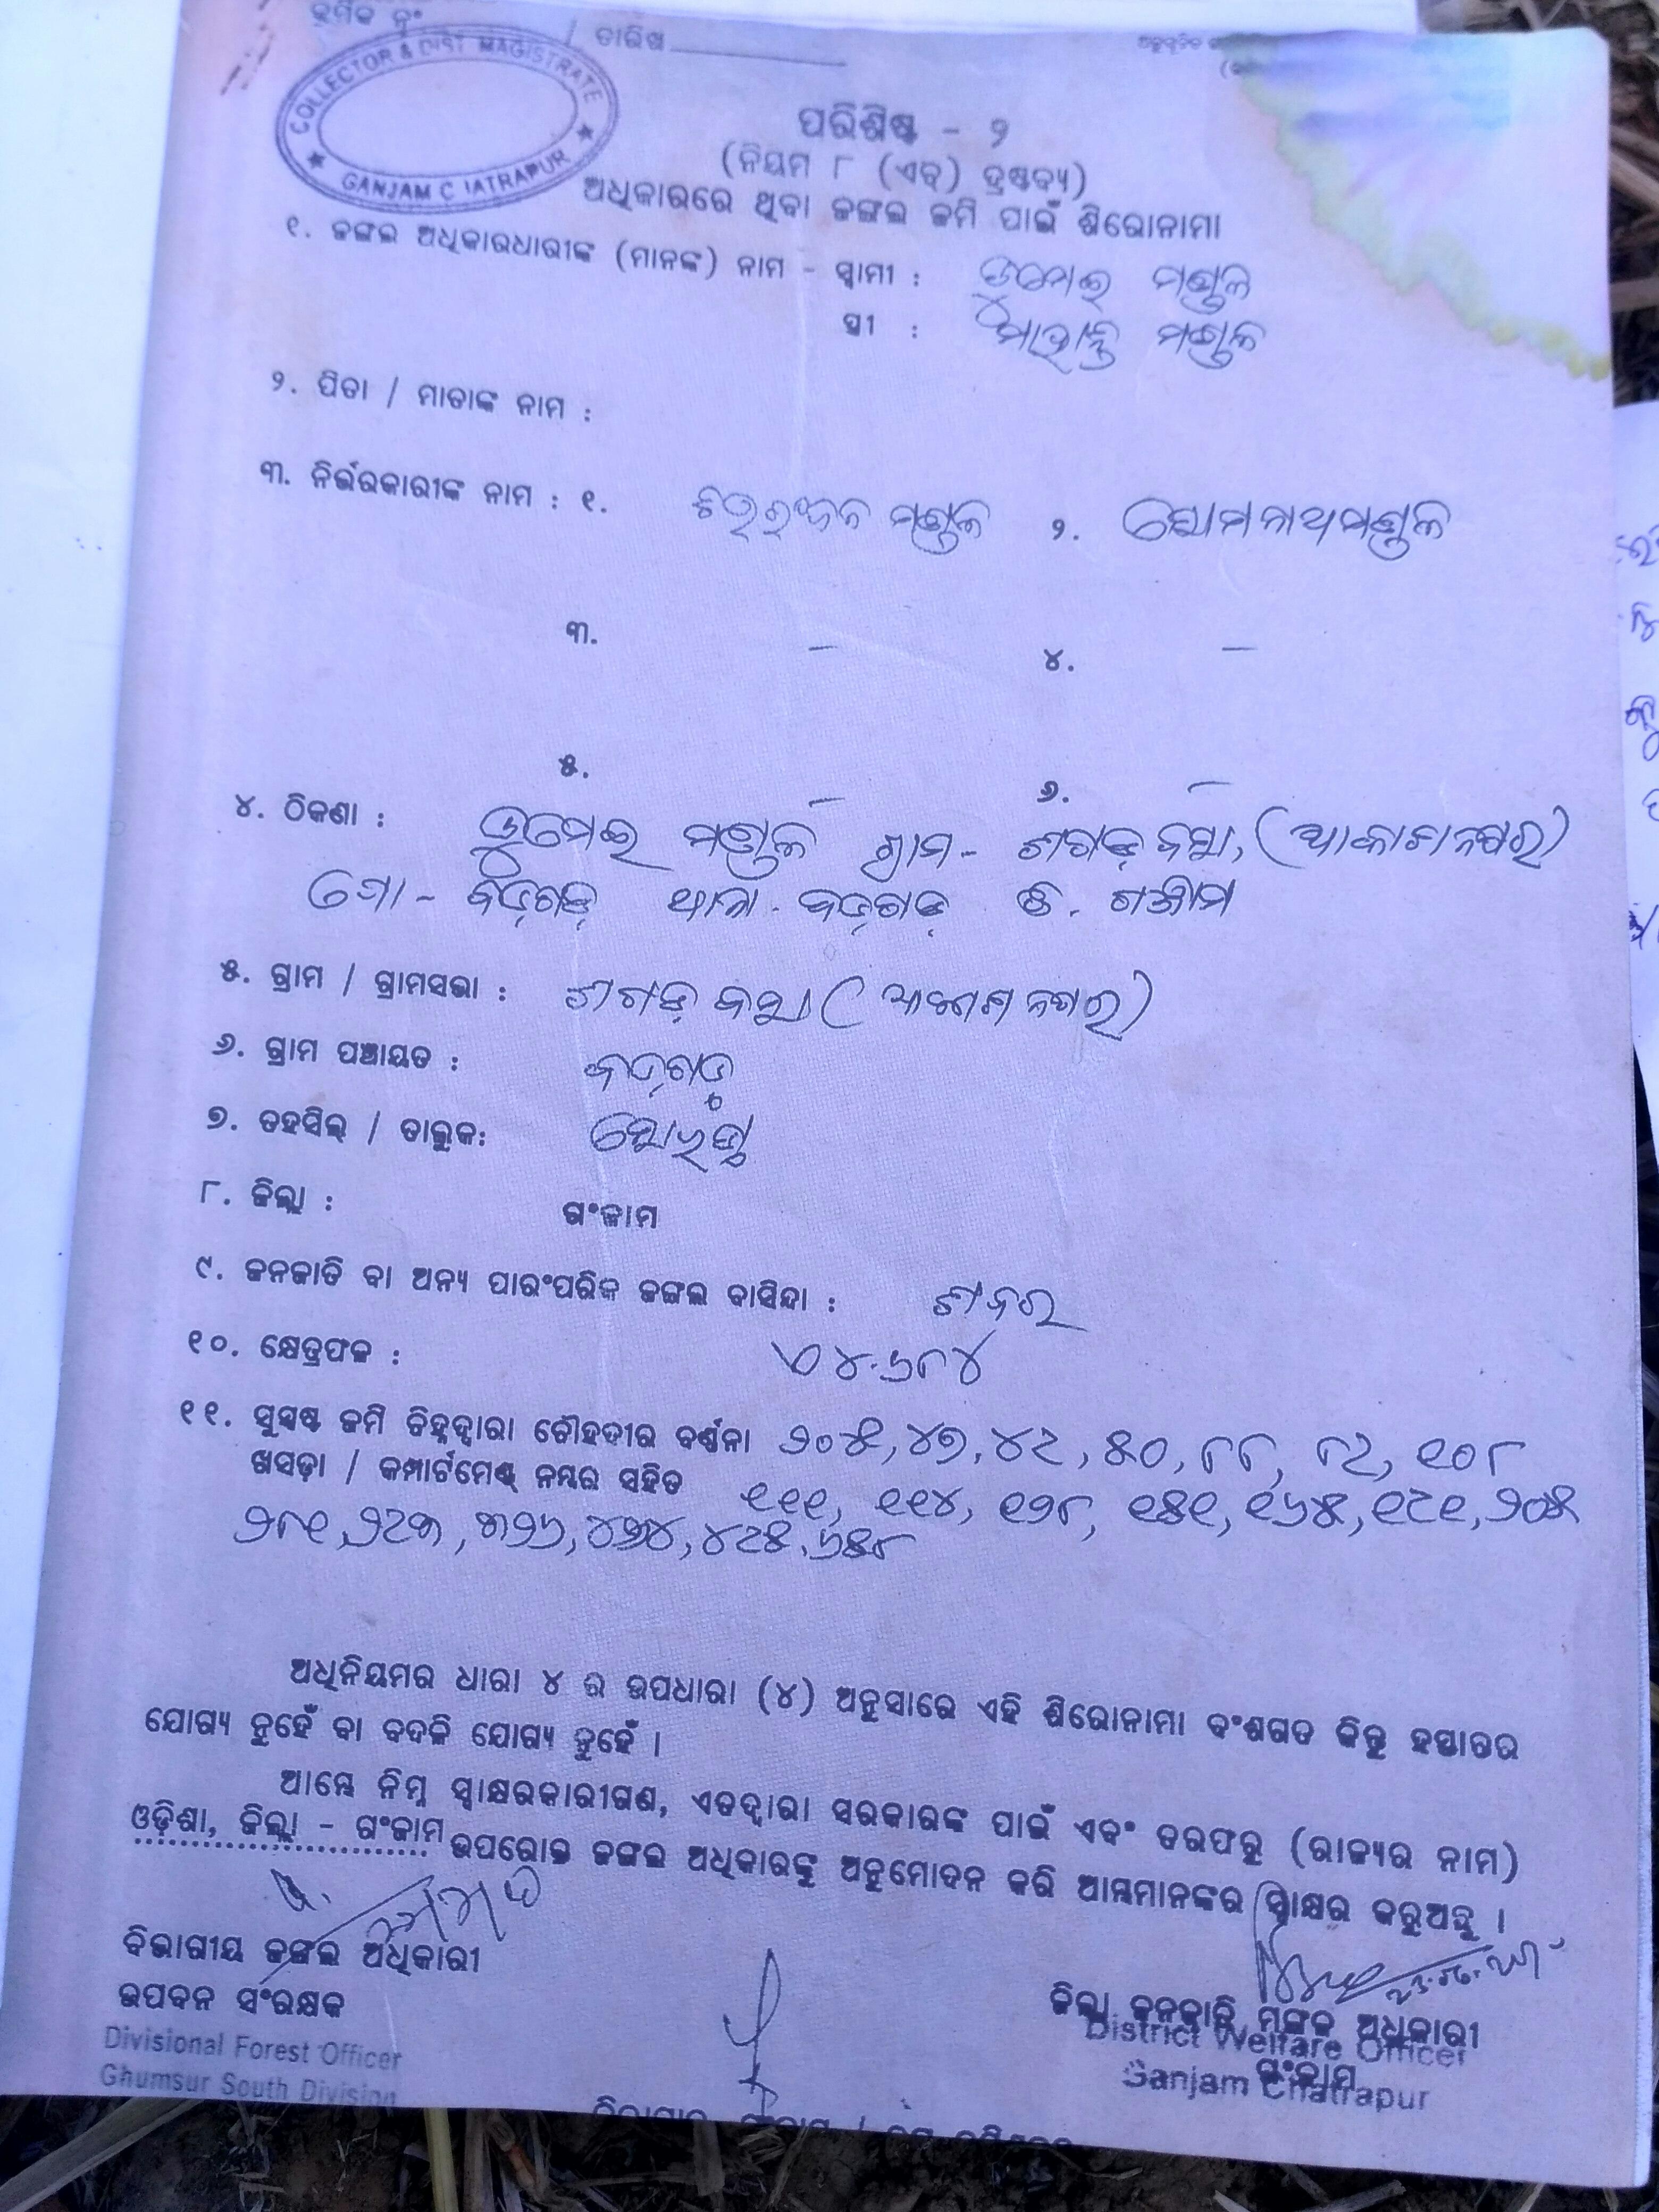 କ୍ରମିକ ନଂ / ତାରିଖ
COLLECTOR & DIST MAGISTRATE
GANJAM CHATRAPUR
ପରିଶିଷ୍ଟ - ୨
(ନିୟମ ୮ (ଏଚ୍) ଦ୍ରଷ୍ଟବ୍ୟ)
ଅଧିକାରରେ ଥିବା ଜଙ୍ଗଲ ଜମି ପାଇଁ ଶିରୋନାମା
୧. ଜଙ୍ଗଲ ଅଧିକାରଧାରୀଙ୍କ (ମାନଙ୍କ) ନାମ - ସ୍ୱାମୀ : ଡୁମେଇ ମଣ୍ଡଳ
ସ୍ତ୍ରୀ : ମଣ୍ଡଳ
୨. ପିତା / ମାତାଙ୍କ ନାମ :
୩. ନିର୍ଭରକାରୀଙ୍କ ନାମ : ୧. ଚିତ୍ତରଂଜନ ମଣ୍ଡଳ ୨. ସୋମନାଥ ମଣ୍ଡଳ
୩. — ୪. —
୫. — ୬. —
୪. ଠିକଣା : ଡୁମେଇ ମଣ୍ଡଳ ଗ୍ରାମ - ଶଗଡ଼ ବସା, (ଆକାଶ ନଗର)
ପୋ - ବଡ଼ଗଡ଼ ଥାନା - ବଡ଼ଗଡ଼ ଜି. ଗଞ୍ଜାମ
୫. ଗ୍ରାମ / ଗ୍ରାମସଭା : ଶଗଡ଼ ବସା (ଆକାଶ ନଗର)
୬. ଗ୍ରାମ ପଞ୍ଚାୟତ : ବଡ଼ଗଡ଼
୭. ତହସିଲ୍ / ତାଲୁକ: ସୋରଡ଼ା
୮. ଜିଲ୍ଲା : ଗଂଜାମ
୯. ଜନଜାତି ବା ଅନ୍ୟ ପାରଂପରିକ ଜଙ୍ଗଲ ବାସିନ୍ଦା : ଶବର
୧୦. କ୍ଷେତ୍ରଫଳ : ୪.୬୮୪
୧୧. ସୁସ୍ପଷ୍ଟ ଜମି ଚିହ୍ନଦ୍ୱାରା ଚୌହଦୀର ବର୍ଣ୍ଣନା ୨୦୫, ୪୭, ୪୯, ୫୦, ୮୮, ୮୯, ୧୦୮
ଖସଡ଼ା / କମ୍ପାର୍ଟମେଣ୍ଟ୍ ନମ୍ବର ସହିତ ୧୧୧, ୧୧୪, ୧୨୮, ୧୫୧, ୧୬୫, ୧୯୧, ୨୦୫
୨୮୧, ୨୯୩, ୩୨୬, ୪୯୫, ୬୫୮
ଅଧିନିୟମର ଧାରା ୪ ର ଉପଧାରା (୪) ଅନୁସାରେ ଏହି ଶିରୋନାମା ବଂଶଗତ କିନ୍ତୁ ହସ୍ତାନ୍ତର
ଯୋଗ୍ୟ ନୁହେଁ ବା ବଦଳି ଯୋଗ୍ୟ ନୁହେଁ ।
ଆମ୍ଭେ ନିମ୍ନ ସ୍ୱାକ୍ଷରକାରୀଗଣ, ଏତଦ୍ୱାରା ସରକାରଙ୍କ ପାଇଁ ଏବଂ ତରଫରୁ (ରାଜ୍ୟର ନାମ)
ଓଡ଼ିଶା, ଜିଲ୍ଲା - ଗଂଜାମ ଉପରୋକ୍ତ ଜଙ୍ଗଲ ଅଧିକାରଙ୍କୁ ଅନୁମୋଦନ କରି ଆମ୍ଭମାନଙ୍କର ସ୍ୱାକ୍ଷର କରୁଅଛୁ ।
ବିଭାଗୀୟ ଜଙ୍ଗଲ ଅଧିକାରୀ
ଉପବନ ସଂରକ୍ଷକ
Divisional Forest Officer
Ghumsur South Division
ଜିଲ୍ଲା ଜନଜାତି ମଙ୍ଗଳ ଅଧିକାରୀ
District Welfare Officer
ଗଂଜାମ
Ganjam Chatrapur